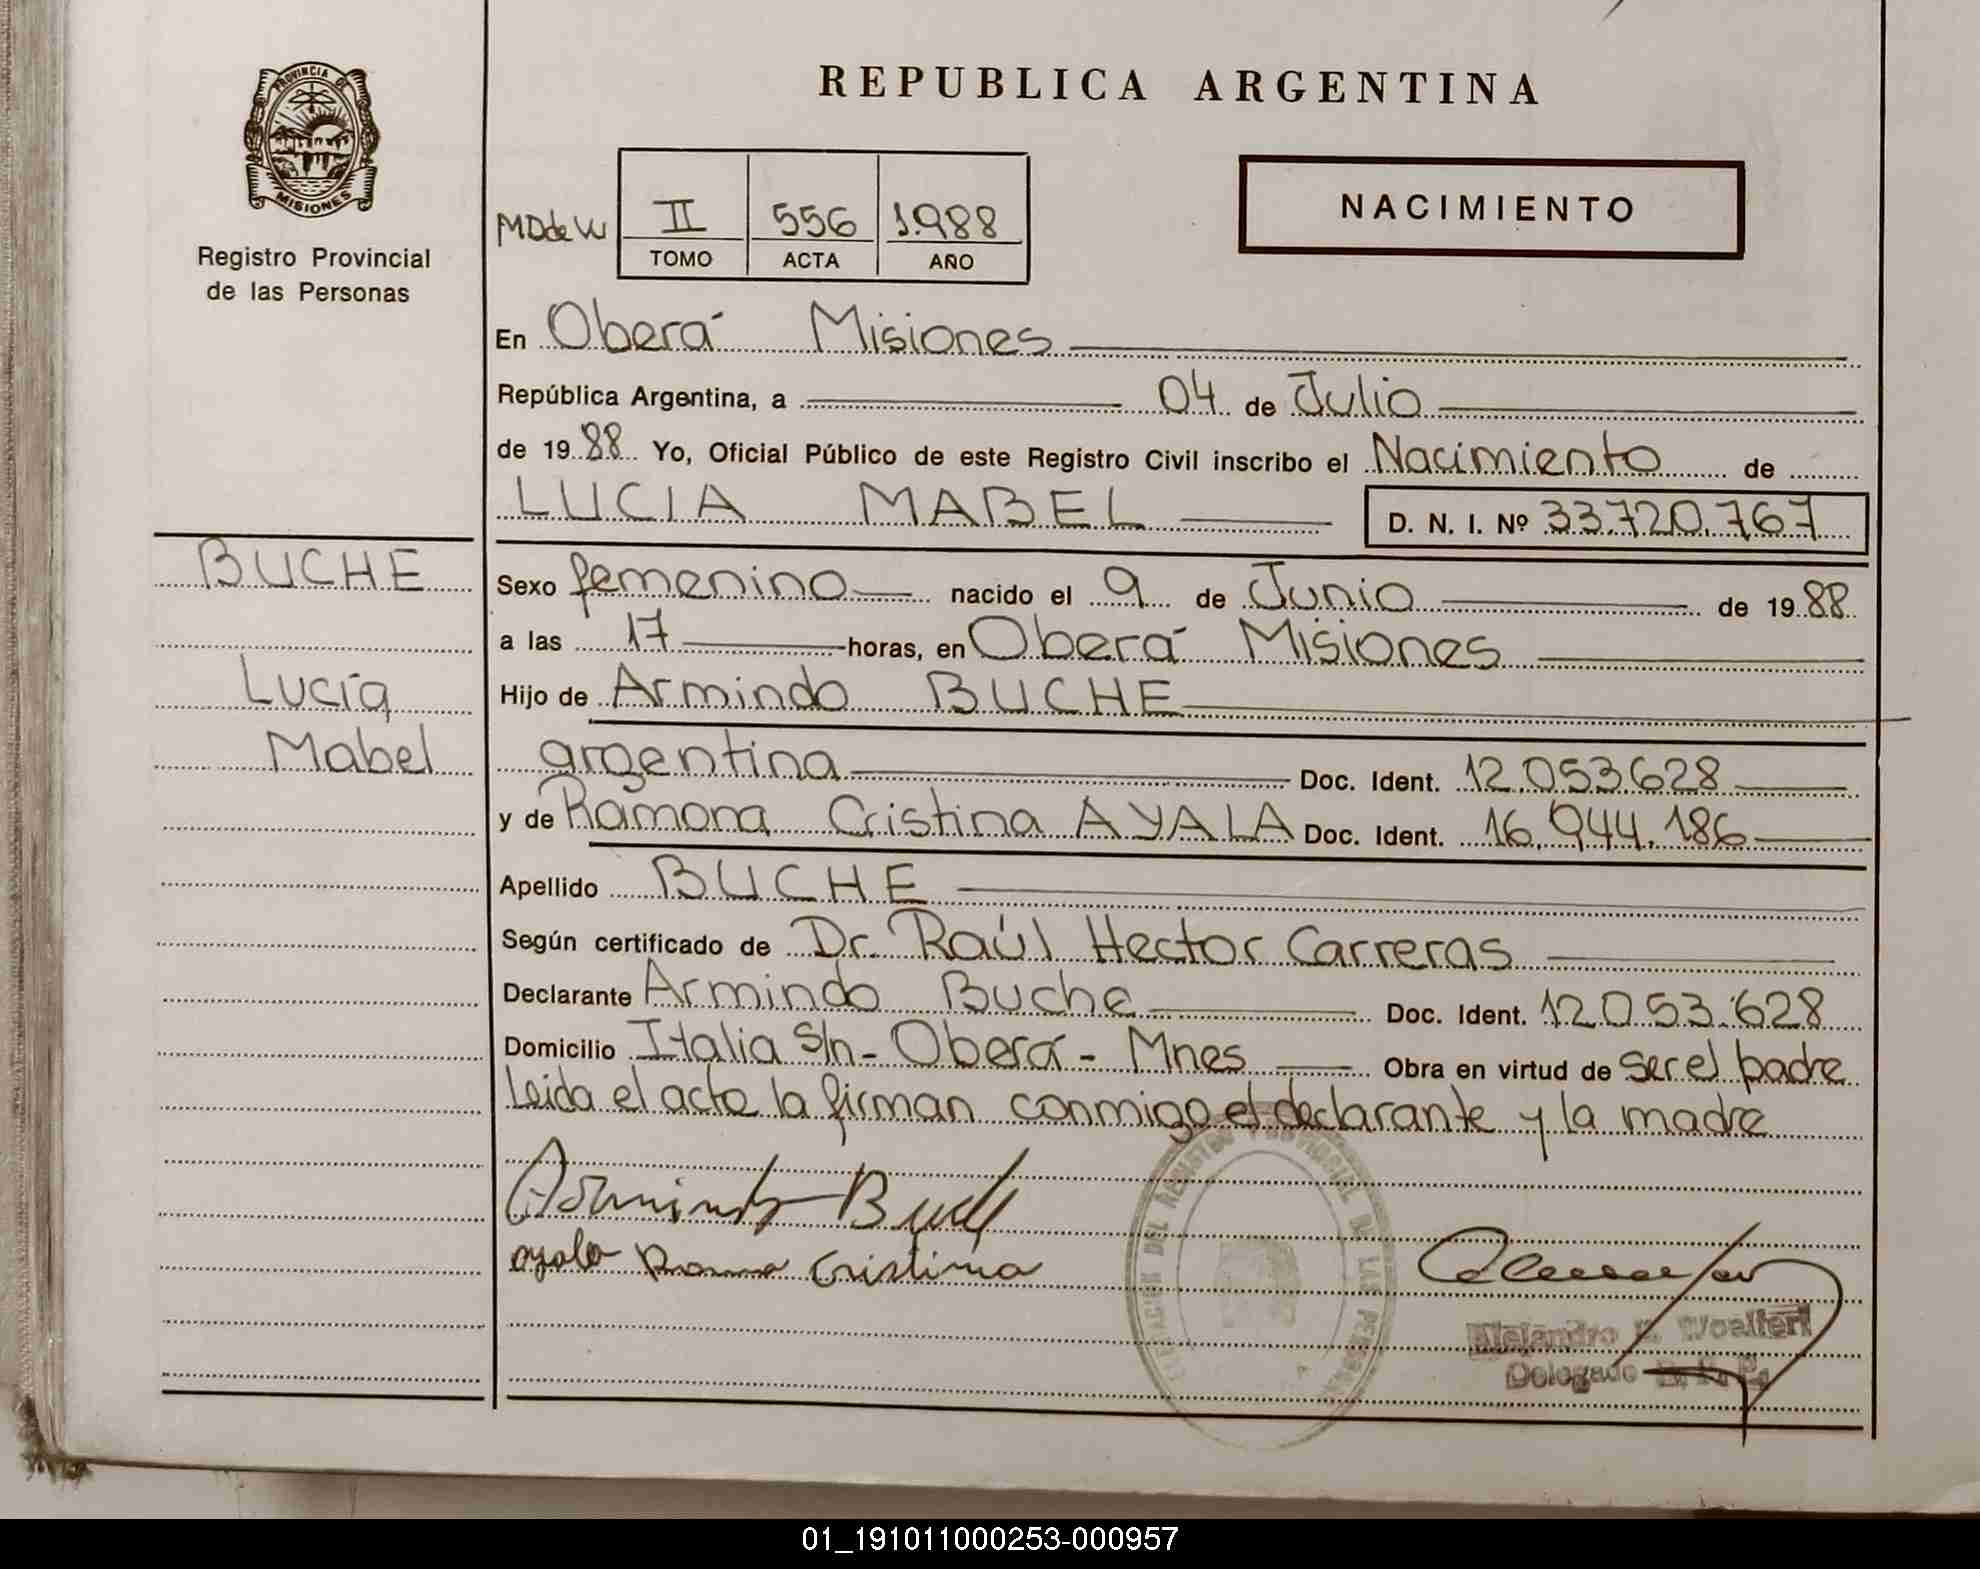 PROVINCIA DE
MISIONES
Registro Provincial
de las Personas
REPUBLICA ARGENTINA
MDdeW II 556 1.988
TOMO ACTA AÑO
NACIMIENTO
En Oberá Misiones
República Argentina, a 04 de Julio
de 1988 Yo, Oficial Público de este Registro Civil inscribo el Nacimiento de
LUCIA MABEL D. N. I. Nº 33.720.767
BUCHE
Lucía
Mabel
Sexo femenino nacido el 9 de Junio de 1988
a las 17 horas, en Oberá Misiones
Hijo de Armindo BUCHE
argentina Doc. Ident. 12.053.628
y de Ramona Cristina AYALA Doc. Ident. 16.944.186
Apellido BUCHE
Según certificado de Dr. Raúl Hector Carreras
Declarante Armindo Buche Doc. Ident. 12.053.628
Domicilio Italia S/n - Oberá - Mnes Obra en virtud de ser el padre
Leida el acta la firman conmigo el declarante y la madre
Armindo Buche
Ayala Ramona Cristina
DEL REGISTRO PROVINCIAL DE LAS PERSONAS
Alejandro Woelfert
Delegado
01_191011000253-000957